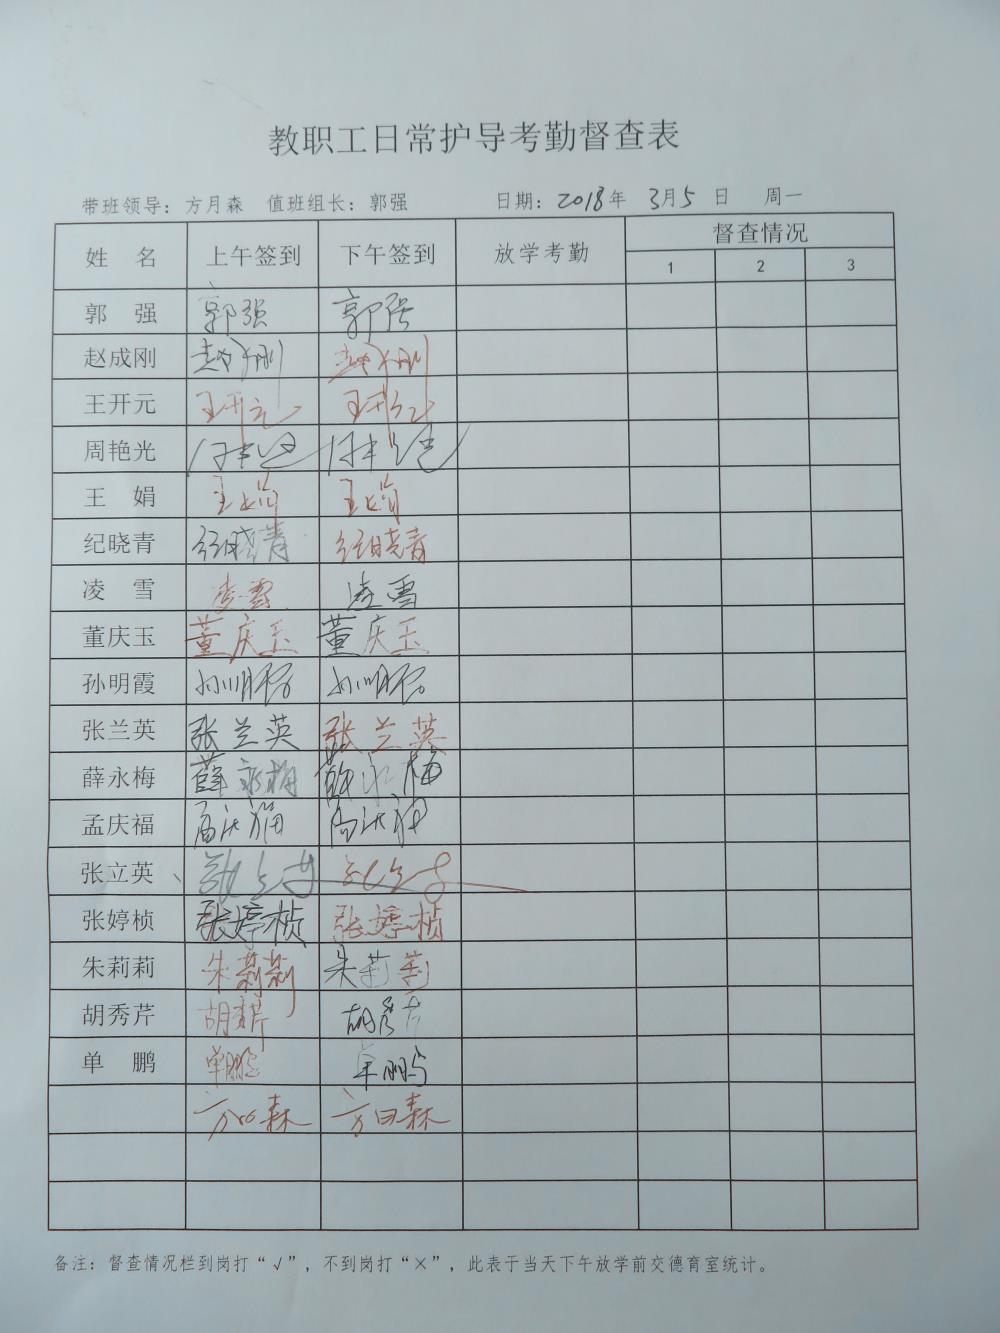 教职工日常护导考勤督查表
带班领导：方月森 值班组长：郭强 日期：2018年 3月5日 周一
姓 名 上午签到 下午签到 放学考勤 督查情况
1 2 3
郭 强 郭强 郭强
赵成刚 赵成刚 赵成刚
王开元 王开元 王开元
周艳光 周艳光 周艳光
王 娟 王娟 王娟
纪晓青 纪晓青 纪晓青
凌 雪 凌雪 凌雪
董庆玉 董庆玉 董庆玉
孙明霞 孙明霞 孙明霞
张兰英 张兰英 张兰英
薛永梅 薛永梅 薛永梅
孟庆福 孟庆福 孟庆福
张立英 张立英 张立英
张婷桢 张婷桢 张婷桢
朱莉莉 朱莉莉 朱莉莉
胡秀芹 胡秀芹 胡秀芹
单 鹏 单鹏 单鹏
方月森 方月森
备注：督查情况栏到岗打“√”，不到岗打“×”，此表于当天下午放学前交德育室统计。